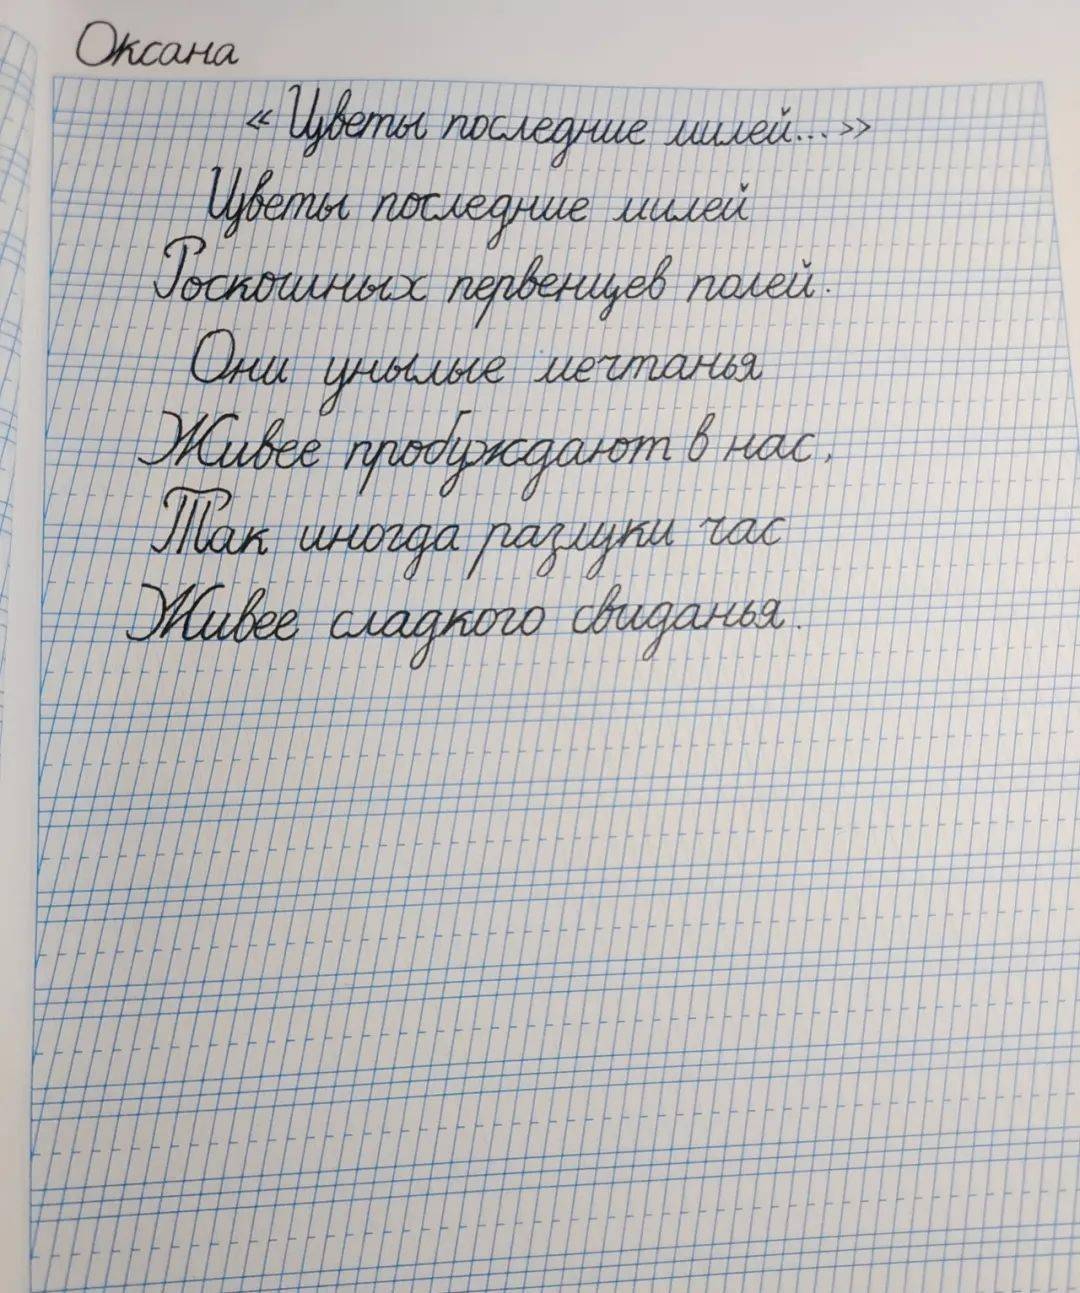 Оксана
« Цветы последние милей... »
Цветы последние милей
Роскошных первенцев полей.
Они унылые мечтанья
Живее пробуждают в нас,
Так иногда разлуки час
Живее сладкого свиданья.